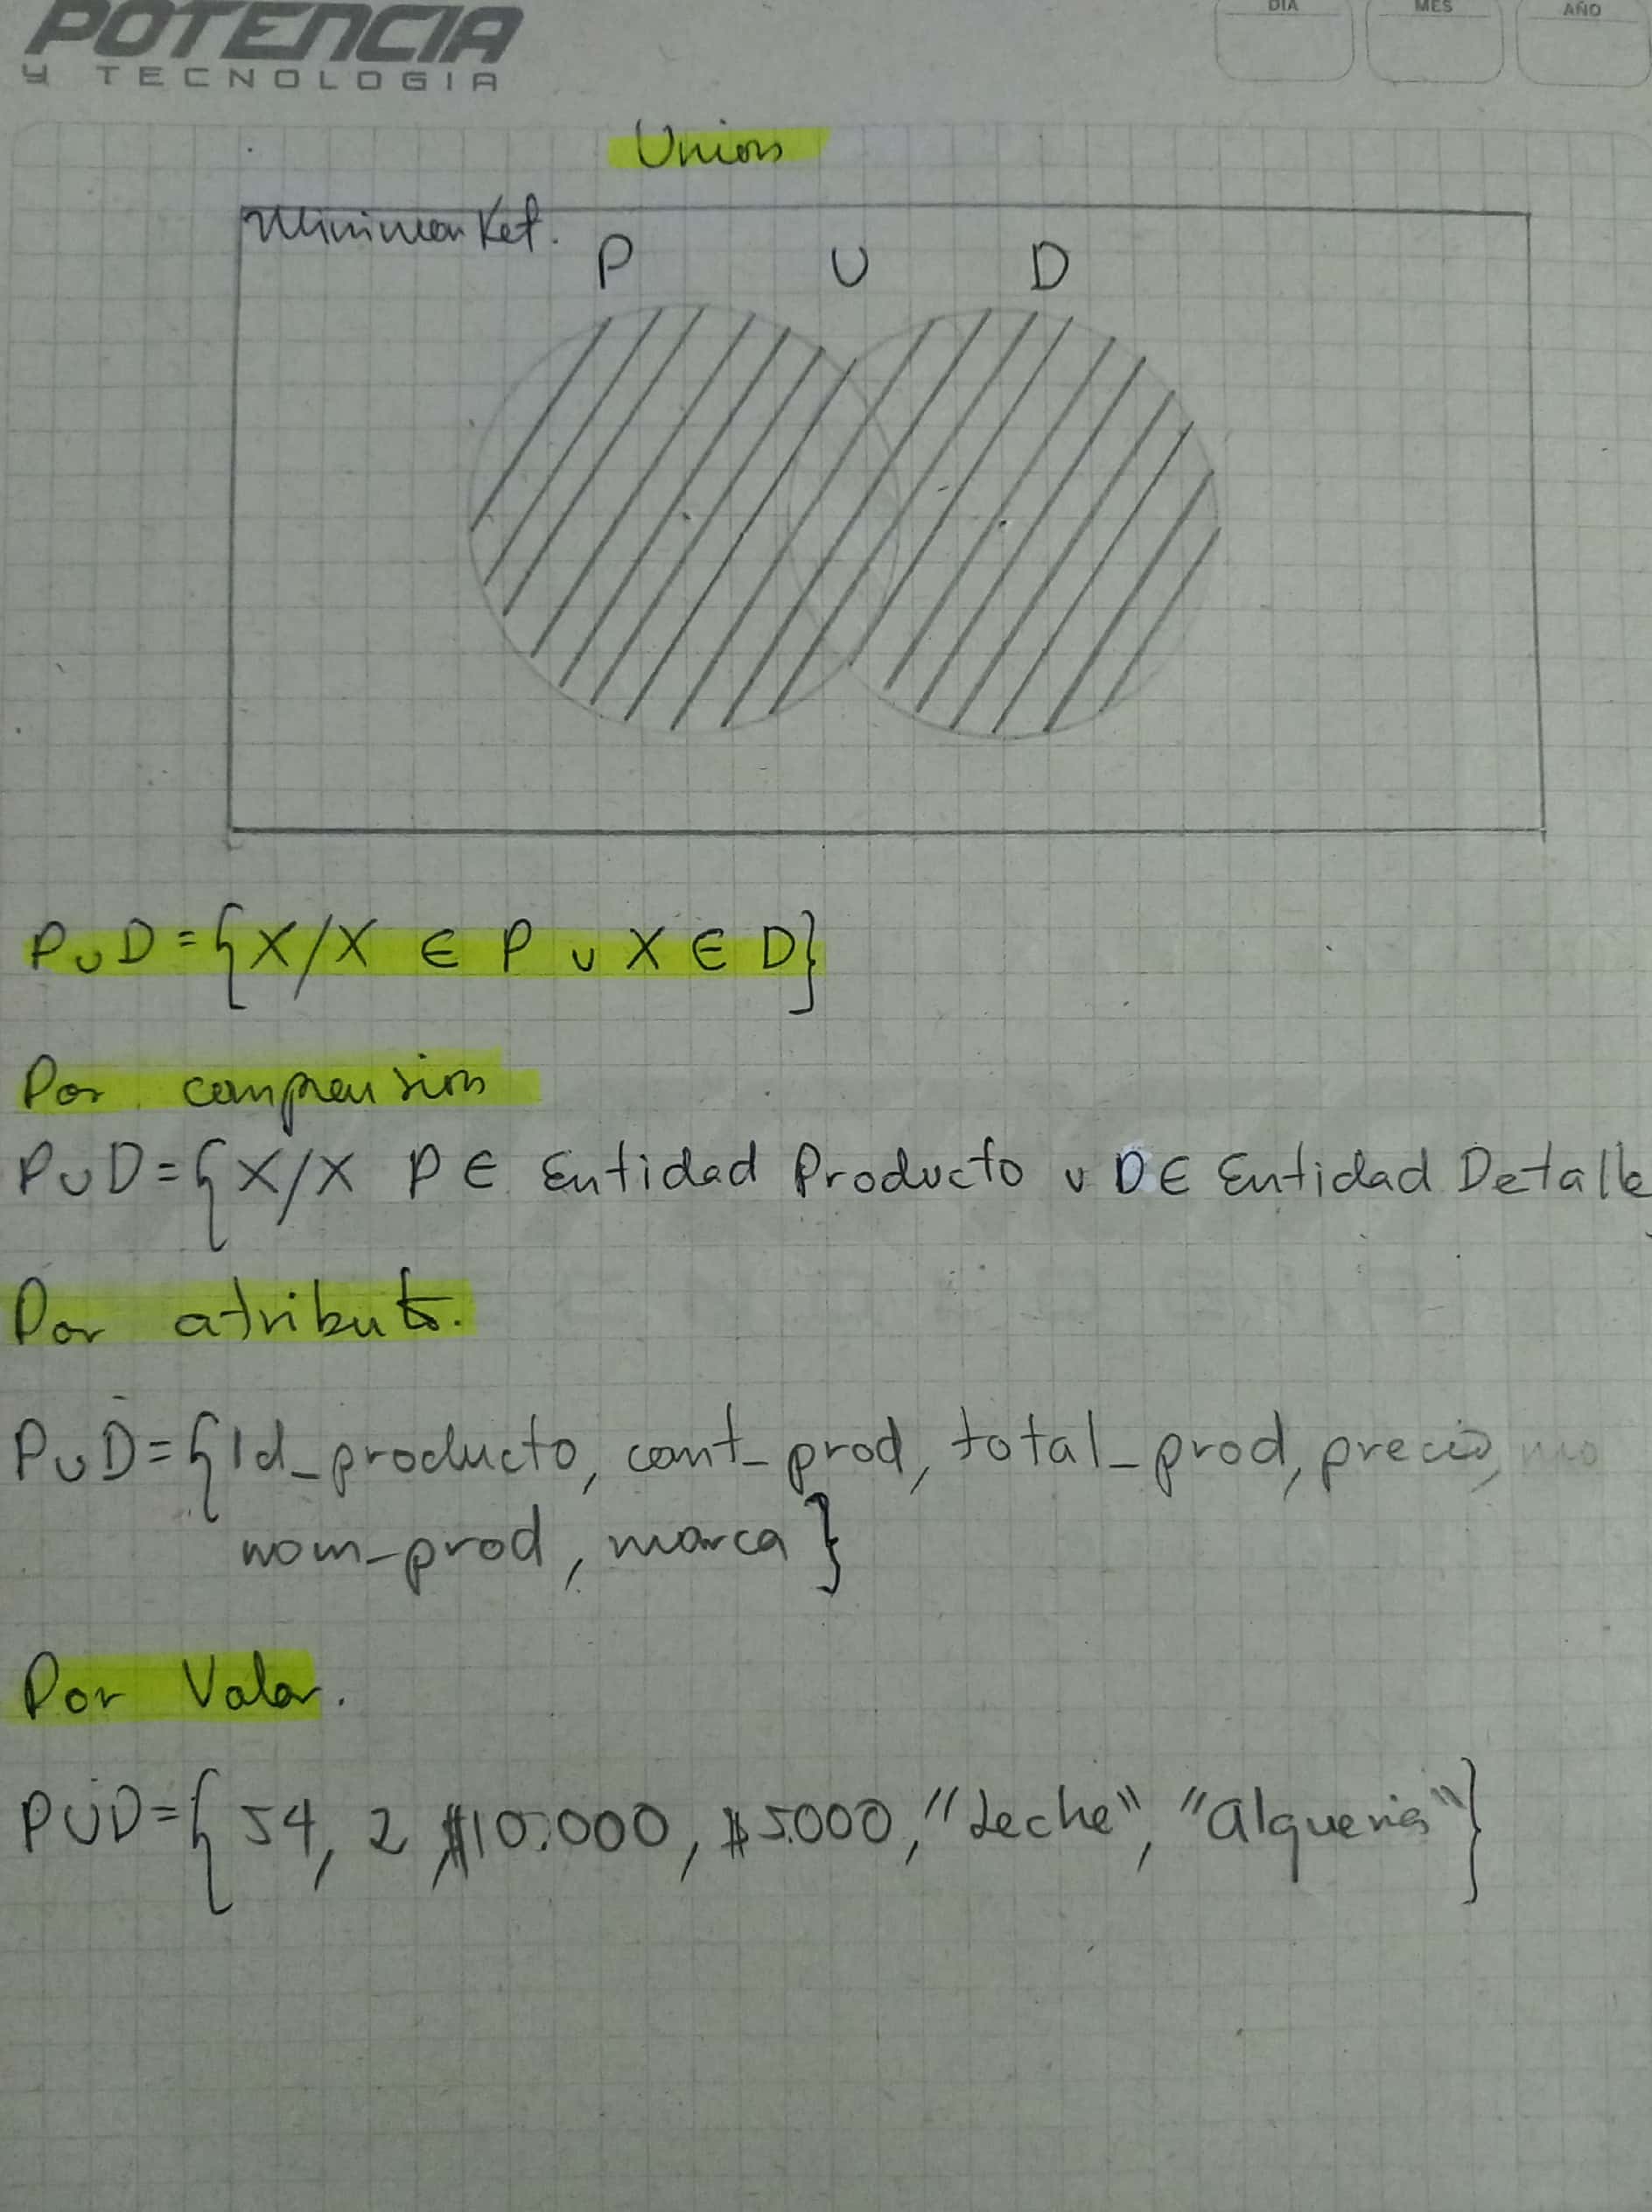 POTENCIA
Y TECNOLOGIA
DIA MES AÑO
Union
Minimarket.
P U D
P∪D = {X/X ∈ P ∪ X ∈ D}
Por comprension
P∪D = {X/X P ∈ Entidad Producto ∪ D ∈ Entidad Detalle
Por atributo.
P∪D = {Id_producto, cant_prod, total_prod, precio,
nom-prod, marca}
Por Valor.
P∪D = {54, 2, $10.000, $5.000, "Leche", "Alqueria"}